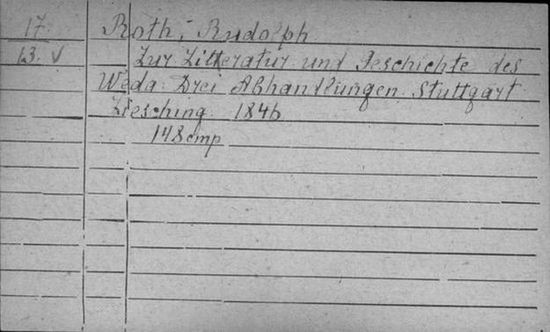 17. Roth, Rudolph
13. V Zur Litteratur und Geschichte des
Weda. Drei Abhandlungen. Stuttgart
Liesching 1846
148 cmp